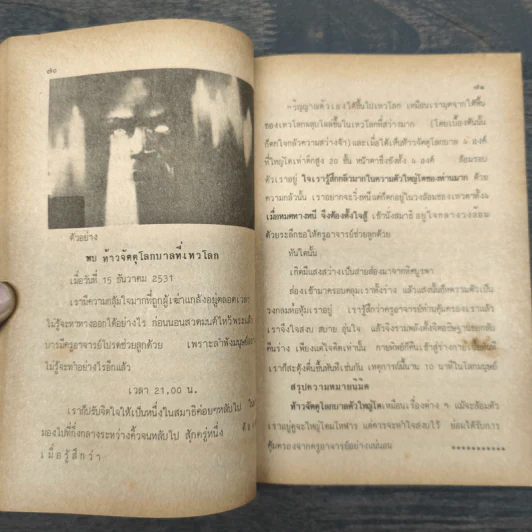 ๗๐
ตัวอย่าง
พบ ท้าวจัตุโลกบาลที่เทวโลก
เมื่อวันที่ 15 ธันวาคม 2531
เรามีความกลุ้มใจมากที่ถูกผู้เฒ่าแกล้งอยู่ตลอดเวลา
ไม่รู้จะหาทางออกได้อย่างไร ก่อนนอนสวดมนต์ไหว้พระแล้ว
บารมีครูอาจารย์โปรดช่วยลูกด้วย เพราะลำพังมนุษย์
ไม่รู้จะทำอย่างไรอีกแล้ว
เวลา 21.00 น.
เราก็ปรับจิตใจให้เป็นหนึ่งในสมาธิค่อยๆหลับไป
มองไปที่กึ่งกลางระหว่างคิ้วจนหลับไป สักครู่หนึ่ง
เมื่อรู้สึกว่า
๗๑
วิญญาณตัวเองได้ขึ้นไปเทวโลก เหมือนเรามุดจากใต้พื้น
ของเทวโลกผลุบโผล่ขึ้นในเทวโลกที่สว่างมาก (โดยเบื้องต้นนั้น
ก็ตกใจกลัวความสว่างจ้า) และเมื่อได้เห็นท้าวจัตุโลกบาล ๔ องค์
ที่ใหญ่โตเท่าตึกสูง 20 ชั้น หน้าตาขึงขังทั้ง ๔ องค์ ล้อมรอบ
ตัวเราอยู่ ใจเรารู้สึกกลัวมากในความตัวใหญ่โตของท่านมาก ด้วย
ความกลัวนั้น เราอยากจะวิ่งหนีแต่ก็ตกอยู่ในวงล้อมของเทวดาทั้ง๔
เมื่อหมดทางหนี จึงต้องตั้งใจสู้ เข้านั่งสมาธิอยู่ใจกลางวงล้อม
ด้วยระลึกขอให้ครูอาจารย์ช่วยลูกด้วย
ทันใดนั้น
เกิดมีแสงสว่างเป็นสายส่องมาจากทิศบูรพา
ส่องเข้ามาครอบคลุมเราทั้งร่าง แล้วแสงนั้นยึดความตัวเป็น
วงกลมห่อหุ้มเราอยู่ เรารู้สึกว่าครูอาจารย์ท่านคุ้มครองเราแล้ว
เราจึงใจสงบ สบาย อุ่นใจ แล้วจึงรวมพลังตั้งจิตอธิษฐานขอกลับ
คืนร่าง เพียงแค่ใจคิดเท่านั้น กายทิพย์ก็คืนเข้าสู่ร่างกาย
เราก็สะดุ้งตื่นขึ้นทันทีเช่นกัน เหตุการณ์นี้นาน 10 นาทีในโลกมนุษย์
สรุปความหมายนิมิต
ท้าวจัตุโลกบาลตัวใหญ่โตเหมือนเรื่องต่าง ๆ แม้จะล้อมตัว
เราอยู่ดูจะใหญ่โตมโหฬาร แต่ควรจะทำใจสงบไว้ ย่อมได้รับการ
คุ้มครองจากครูอาจารย์อย่างแน่นอน ***********